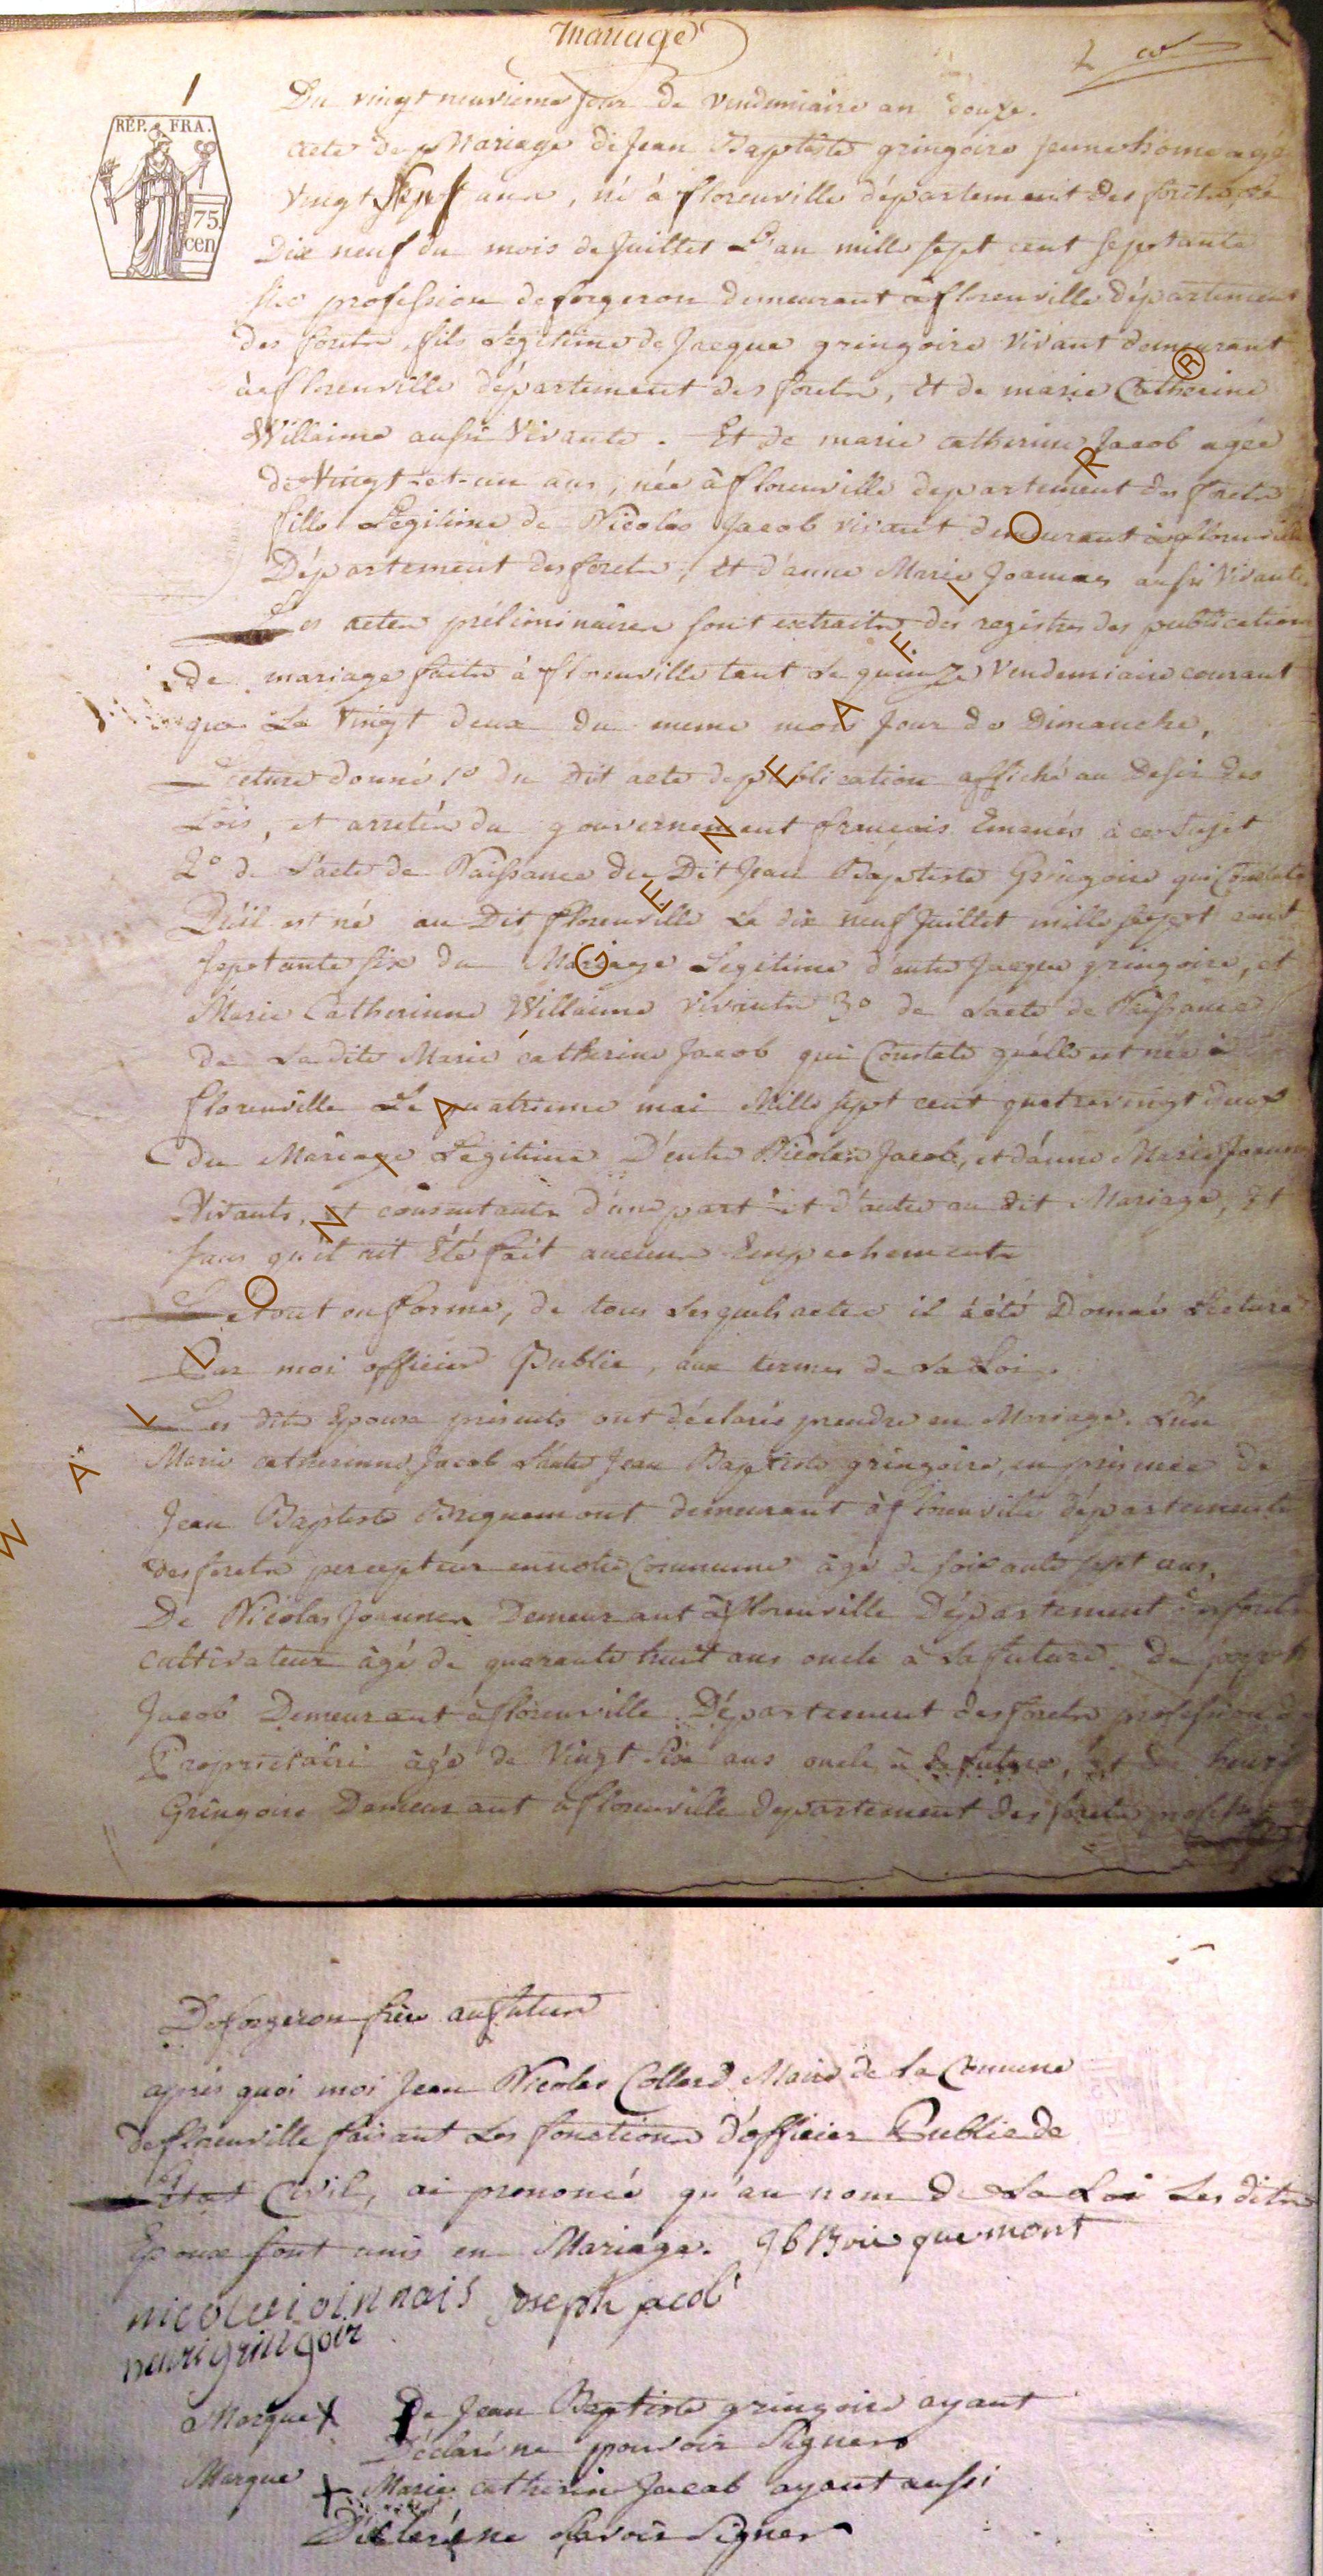 Mariage
1
RÉP. FRA.
75 cen
Du vingt neuvieme jour de vendemiaire an douze.
acte de Mariage de Jean Baptiste gringoire jeune home agé
vingt sept ans, né à florenville département des forets, le
Dix neuf du mois de Juillet L'an mille sept cent septante
six profession de forgeron demeurant à florenville département
des forets, fils Legitime de Jacque gringoire vivant demeurant
à florenville département des forets, et de marie Catherine
Willaime aussi vivante. Et de marie catherine Jacob agée
de Vingt-et-un ans, née à florenville departement des forets
fille Legitime de Nicolas Jacob vivant demeurant à florenville
Département des forets, et d'anne Marie Joannes aussi vivante
Les actes préliminaires sont extraits des registres des publications
de mariage faites à florenville tant Le quinze Vendemiaire courant
que Le Vingt deux du meme mois Jour de Dimanche,
Lecture donné 1º du dit acte de publication affiché au Desir des
Lois, et arretés du gouvernement francais Emanés à ce Sujet
2º de L'acte de Naissance du Dit Jean Baptiste Gringoire qui Constate
Qu'il est né au Dit florenville Le dix neuf Juillet mille sept cent
septante six du Mariage Legitime d'entre Jacque gringoire, et
Marie Catherinne Willaime vivants 3º de Lacte de Naissance
de La dite Marie catherine Jacob qui Constate qu'elle est née à
florenville Le quatrieme mai Mille sept cent quatre vingt deux
du Mariage Legitime D'entre Nicolas Jacob, et d'anne Marie Joannes
Vivants, et consentants d'une part et d'autre au dit Mariage, Et
sans qu'il ait Été fait aucuns Empechements
Le tout en forme, de tous Lesquels actes il à été Donné Lecture
Par moi officier Public, aux termes de La Loi.
Les dits Epoux présents ont déclarés prendre en Mariage. L'un
Marie catherinne Jacob L'autre Jean Baptiste gringoire, en présence de
Jean Baptiste Briquemont demeurant à florenville départements
des forets percepteur en notre Commune âgé de soixante sept ans,
De Nicolas Joannes Demeurant à florenville Département des forets
cultivateur âgé de quarante huit ans oncle à La future. De joseph
Jacob Demeurant à florenville Département des forets profession de
Propriétaire âgé de Vingt Six ans oncle à la future, Et de henri
Gringoire Demeurant à florenville departement des forets profession
De forgeron frère au futur
après quoi moi Jean Nicolas Collard Maire de La Commune
de florenville faisant Les fonctions d'officier Public de
L'état Civil, ai prononcé qu'au nom De La Loi Les dits
Epoux sont unis en Mariage. J b Briquemont
nicolas joinnais joseph jacob
henri gringoir
Marque X De Jean Baptiste gringoire ayant
Déclaré ne pouvoir Signer
Marque X Marie catherin Jacob ayant aussi
Déclaré ne Savoir Signer
WALLONIA GENEAFLOR ®